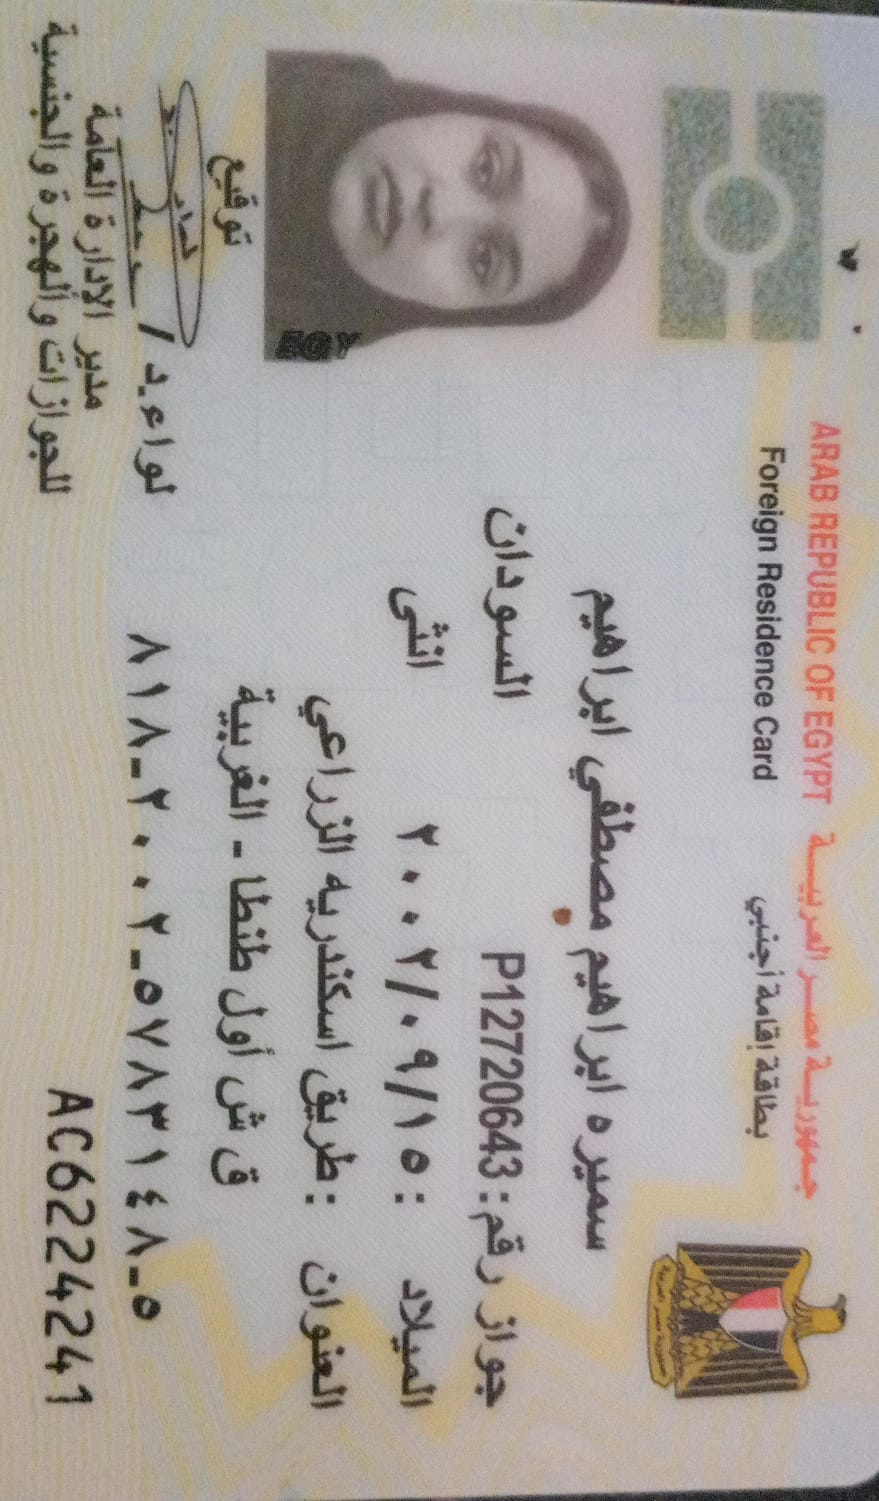 ARAB REPUBLIC OF EGYPT جمهورية مصر العربية
Foreign Residence Card بطاقة إقامة أجنبي
سميره ابراهيم مصطفي ابراهيم
جواز رقم : P12720643 السودان
الميلاد : ٢٠٠٢/٠٩/١٥ انثى
العنوان : طريق اسكندريه الزراعي
ق ش أول طنطا - الغربية
توقيع
EGY
٨١٨-٢٠٠٢-٥٧٨٣١٤٨-٥
لواء.د/
مدير الإدارة العامة
للجوازات والهجرة والجنسية
AC6224241